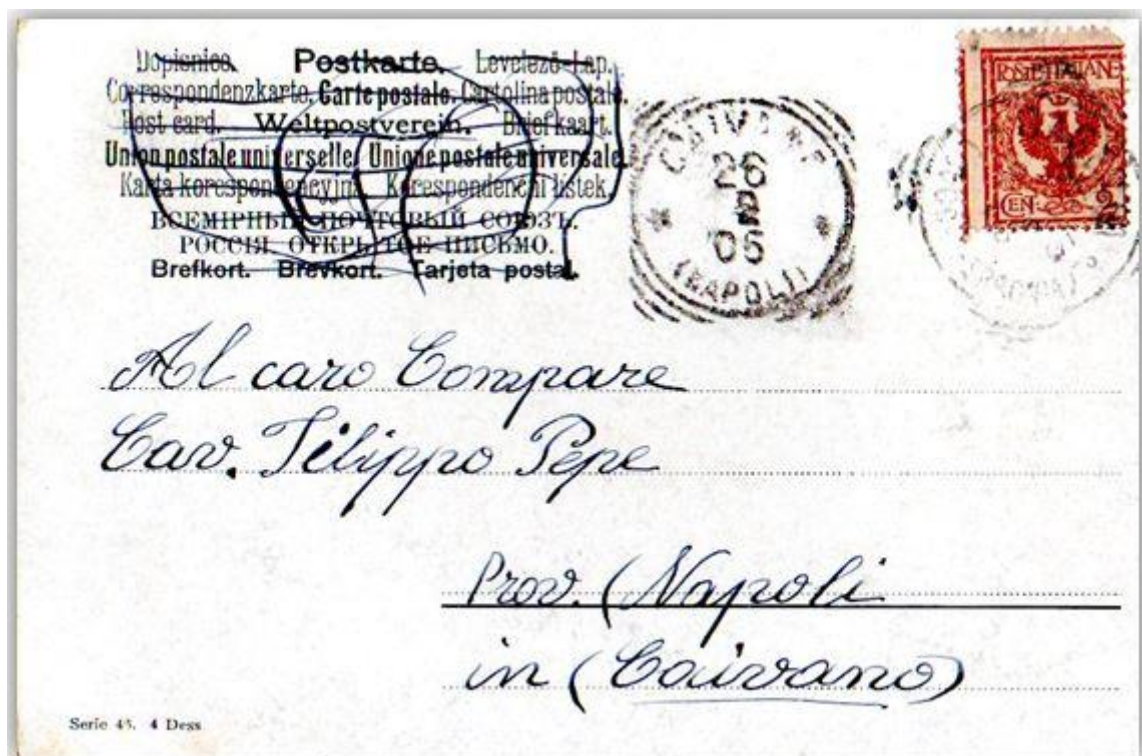 Dopisnice. Postkarte. Levelező-Lap.
Correspondenzkarte. Carte postale. Cartolina postale.
Post card. Weltpostverein. Briefkaart.
Union postale universelle. Unione postale universale.
Karta korespondencyjna. Korespondenční lístek.
ВСЕМІРНЫЙ ПОЧТОВЫЙ СОЮЗЪ.
РОССІЯ. ОТКРЫТОЕ ПИСЬМО.
Brefkort. Brevkort. Tarjeta postal.
CAIVANO
26
05
(NAPOLI)
POSTE ITALIANE
CEN. 2
Al caro Compare
Cav. Filippo Pepe
Prov. (Napoli
in (Caivano)
Serie 45. 4 Dess